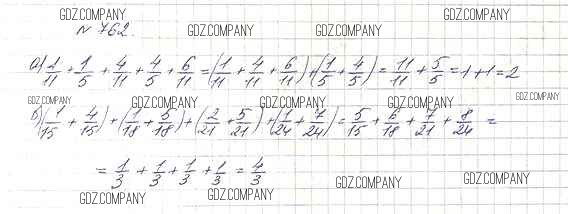 GDZ.COMPANY
№ 762.
GDZ.COMPANY GDZ.COMPANY
а) 1/11 + 1/5 + 4/11 + 4/5 + 6/11 = (1/11 + 4/11 + 6/11) + (1/5 + 4/5) = 11/11 + 5/5 = 1 + 1 = 2
GDZ.COMPANY GDZ.COMPANY GDZ.COMPANY GDZ.COMPANY GDZ.COMPANY
б) (1/15 + 4/15) + (1/18 + 5/18) + (2/21 + 5/21) + (1/24 + 7/24) = 5/15 + 6/18 + 7/21 + 8/24 =
= 1/3 + 1/3 + 1/3 + 1/3 = 4/3
GDZ.COMPANY GDZ.COMPANY GDZ.COMPANY GDZ.COMPANY